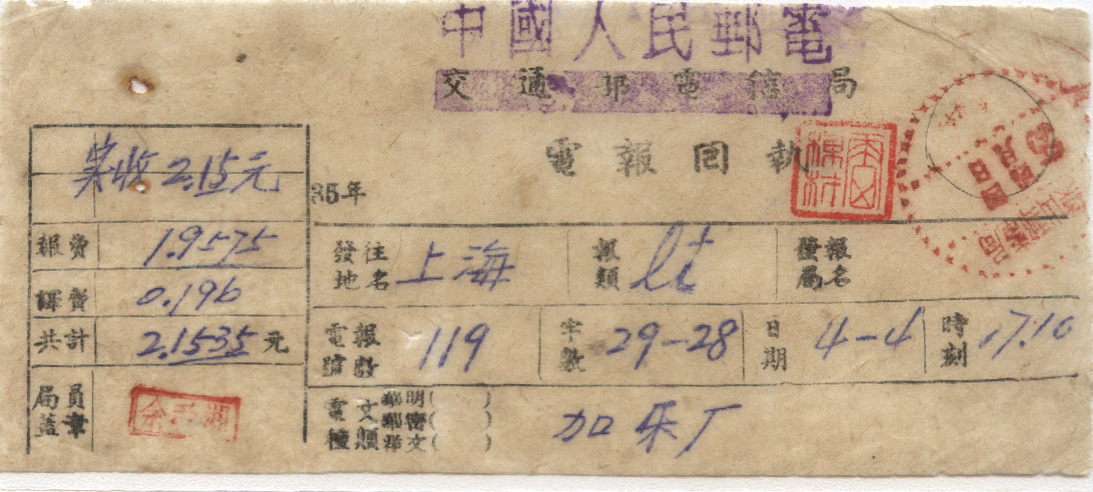 中國人民郵電
交通部電信局
電報回執
实收2.15元
35年
報費 1.9575
發往地名 上海
報類 lt
發報局名
譯費 0.196
共計 2.1535元
電報號數 119
字數 29-28
日期 4-4
時刻 17.10
局員蓋章
電文種類
華明( )
華密( )
洋文( )
加乐厂